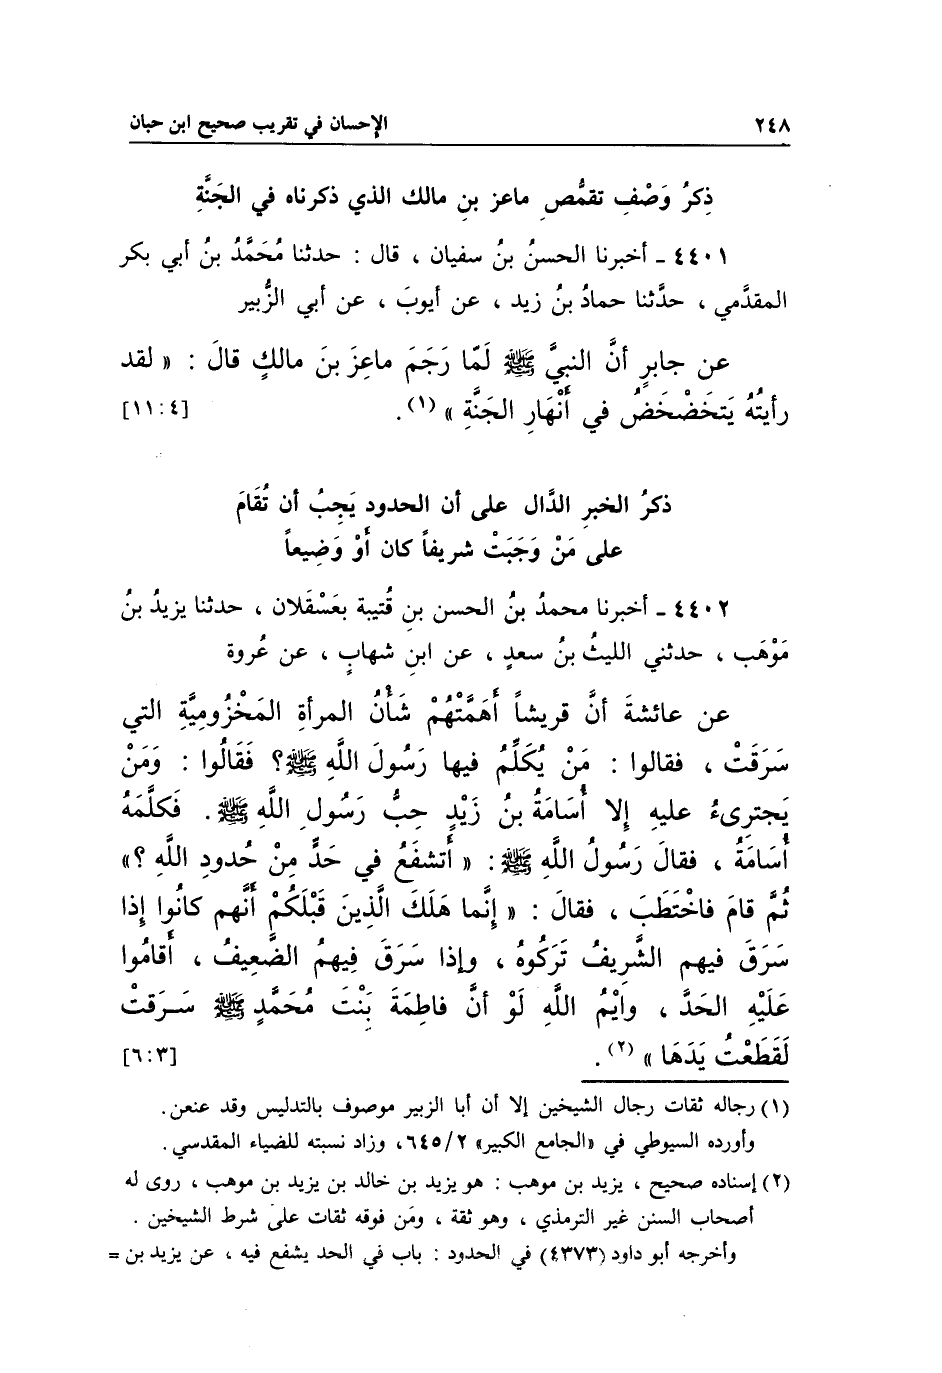 ٢٤٨ الإحسان في تقريب صحيح ابن حبان
ذِكرُ وَصْفِ تقمُّصِ ماعز بنِ مالك الذي ذكرناه في الجَنَّةِ
٤٤٠١ ـ أخبرنا الحسنُ بنُ سفيان ، قال : حدثنا مُحَمَّدُ بنُ أبي بكر
المقدَّمي ، حدَّثنا حمادُ بنُ زيد ، عن أيوبَ ، عن أبي الزُّبير
عن جابرٍ أنَّ النبيَّ ﷺ لَمّا رَجَمَ ماعِزَ بنَ مالكٍ قالَ : « لقد
رأيتُهُ يَتَخَضْخَضُ في أَنْهَارِ الجَنَّةِ » (١). [٤:١١]
ذكرُ الخبرِ الدَّال على أن الحدود يَجِبُ أن تُقَامَ
على مَنْ وَجَبَتْ شريفاً كان أَوْ وَضِيعاً
٤٤٠٢ ـ أخبرنا محمدُ بنُ الحسن بنِ قُتيبة بعَسْقَلان ، حدثنا يزيدُ بنُ
مَوْهَب ، حدثني الليثُ بنُ سعدٍ ، عن ابنِ شهابٍ ، عن عُروة
عن عائشةَ أنَّ قريشاً أَهَمَّتْهُمْ شَأْنُ المرأةِ المَخْزُومِيَّةِ التي
سَرَقَتْ ، فقالوا : مَنْ يُكَلِّمُ فيها رَسُولَ اللَّهِ ﷺ؟ فَقَالُوا : وَمَنْ
يَجترىءُ عليهِ إلا أُسَامَةُ بنُ زَيْدٍ حِبُّ رَسُولِ اللَّهِ ﷺ. فَكلَّمَهُ
أُسَامَةُ ، فقالَ رَسُولُ اللَّهِ ﷺ: « أتشفَعُ في حَدٍّ مِنْ حُدودِ اللَّهِ ؟»
ثُمَّ قامَ فاخْتَطَبَ ، فقالَ : « إِنَّما هَلَكَ الَّذِينَ قَبْلَكُمْ أَنَّهم كانُوا إذا
سَرَقَ فيهم الشَّريفُ تَرَكُوهُ ، وإذا سَرَقَ فِيهِمُ الضَّعِيفُ ، أقامُوا
عَلَيْهِ الحَدَّ ، وايْمُ اللَّهِ لَوْ أنَّ فاطِمَةَ بِنْتَ مُحَمَّدٍ ﷺ سَـرَقتْ
لَقَطَعْتُ يَدَهَا » (٢). [٣:٦]
(١) رجاله ثقات رجال الشيخين إلا أن أبا الزبير موصوف بالتدليس وقد عنعن.
وأورده السيوطي في «الجامع الكبير» ٦٤٥/٢، وزاد نسبته للضياء المقدسي.
(٢) إسناده صحيح ، يزيد بن موهب : هو يزيد بن خالد بن يزيد بن موهب ، روى له
أصحاب السنن غير الترمذي ، وهو ثقة ، ومَن فوقه ثقات على شرط الشيخين .
وأخرجه أبو داود (٤٣٧٣) في الحدود : باب في الحد يشفع فيه ، عن يزيد بن =